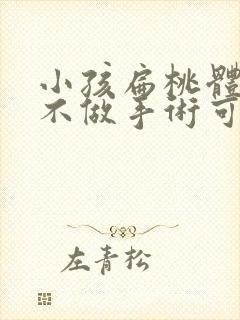 小孩扁桃體
不做手術可
左青松